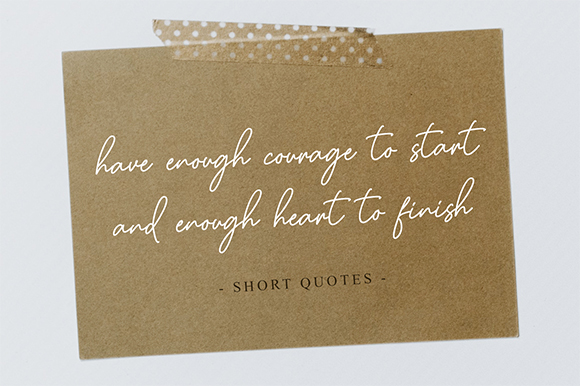 have enough courage to start
and enough heart to finish
- SHORT QUOTES -